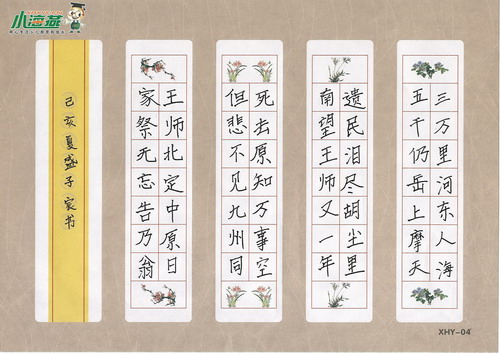 小海燕
三万里河东人海
五千仍岳上摩天
遗民泪尽胡尘里
南望王师又一年
死去原知万事空
但悲不见九州同
王师北定中原日
家祭无忘告乃翁
己亥夏盛子宸书
XHY-04